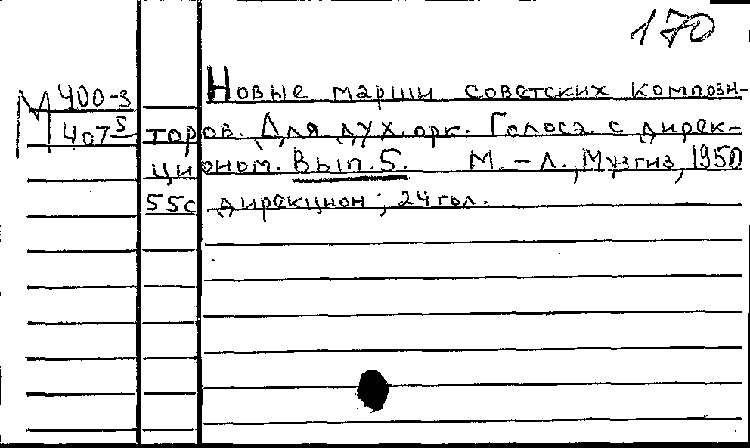 170
М 400-3
407 5
Новые марши советских компози-
торов. Для дух. орк. Голоса с дирек-
ционом. Вып. 5. М. – Л., Музгиз, 1950
55с дирекцион; 24 гол.